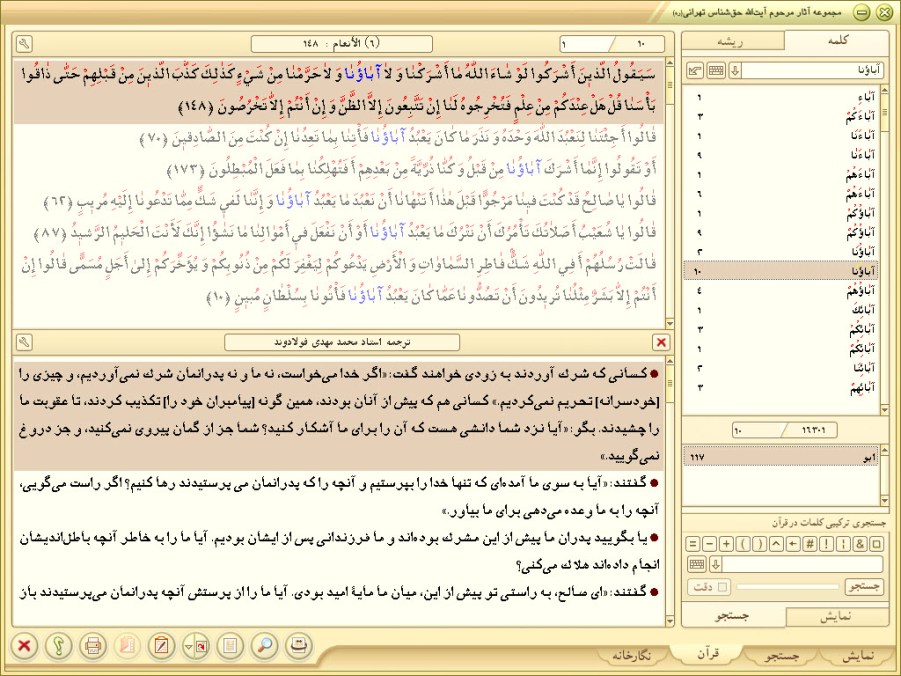 مجموعه آثار مرحوم آیت‌الله حق‌شناس تهرانی(ره)
کلمه
ریشه
آباؤنا
آباءِ ٦
آباءَکُمْ ٣
آباءَنا ١
آباءَنٰا ٩
آباءَهُمْ ١
آباءَهُمْ ٦
آباؤُکُمْ ١
آباؤُکُمْ ٩
آباؤُنَا ٢
آباؤُنا ١٠
آباؤُهُمْ ٤
آبائِکَ ١
آبائِکُمْ ٣
آبائِکُمُ ١
آبائِنَا ٢
آبائِهِمْ ٣
١٦٣٠١ / ١٠
ابو ١١٧
جستجوی ترکیبی کلمات در قرآن
= − + ( ) ^ ← # ! ¦ &
جستجو
دقت
نمایش
جستجو
١٠ / ١
(٦) الأنعام : ١٤٨
سَيَقُولُ الَّذِينَ أَشْرَكُوا لَوْ شَاءَ اللَّهُ مَا أَشْرَكْنَا وَ لاَ آبَاؤُنَا وَ لاَ حَرَّمْنَا مِنْ شَيْءٍ كَذَلِكَ كَذَّبَ الَّذِينَ مِنْ قَبْلِهِمْ حَتَّى ذَاقُوا
بَأْسَنَا قُلْ هَلْ عِنْدَكُمْ مِنْ عِلْمٍ فَتُخْرِجُوهُ لَنَا إِنْ تَتَّبِعُونَ إِلاَّ الظَّنَّ وَ إِنْ أَنْتُمْ إِلاَّ تَخْرُصُونَ ﴿١٤٨﴾
قَالُوا أَ جِئْتَنَا لِنَعْبُدَ اللَّهَ وَحْدَهُ وَ نَذَرَ مَا كَانَ يَعْبُدُ آبَاؤُنَا فَأْتِنَا بِمَا تَعِدُنَا إِنْ كُنْتَ مِنَ الصَّادِقِينَ ﴿٧٠﴾
أَوْ تَقُولُوا إِنَّمَا أَشْرَكَ آبَاؤُنَا مِنْ قَبْلُ وَ كُنَّا ذُرِّيَّةً مِنْ بَعْدِهِمْ أَ فَتُهْلِكُنَا بِمَا فَعَلَ الْمُبْطِلُونَ ﴿١٧٣﴾
قَالُوا يَا صَالِحُ قَدْ كُنْتَ فِينَا مَرْجُوًّا قَبْلَ هَذَا أَ تَنْهَانَا أَنْ نَعْبُدَ مَا يَعْبُدُ آبَاؤُنَا وَ إِنَّنَا لَفِي شَكٍّ مِمَّا تَدْعُونَا إِلَيْهِ مُرِيبٍ ﴿٦٢﴾
قَالُوا يَا شُعَيْبُ أَ صَلاَتُكَ تَأْمُرُكَ أَنْ نَتْرُكَ مَا يَعْبُدُ آبَاؤُنَا أَوْ أَنْ نَفْعَلَ فِي أَمْوَالِنَا مَا نَشَاءُ إِنَّكَ لَأَنْتَ الْحَلِيمُ الرَّشِيدُ ﴿٨٧﴾
قَالَتْ رُسُلُهُمْ أَ فِي اللَّهِ شَكٌّ فَاطِرِ السَّمَاوَاتِ وَ الْأَرْضِ يَدْعُوكُمْ لِيَغْفِرَ لَكُمْ مِنْ ذُنُوبِكُمْ وَ يُؤَخِّرَكُمْ إِلَى أَجَلٍ مُسَمًّى قَالُوا إِنْ
أَنْتُمْ إِلاَّ بَشَرٌ مِثْلُنَا تُرِيدُونَ أَنْ تَصُدُّونَا عَمَّا كَانَ يَعْبُدُ آبَاؤُنَا فَأْتُونَا بِسُلْطَانٍ مُبِينٍ ﴿١٠﴾
ترجمه استاد محمد مهدی فولادوند
● کسانی که شرك آوردند به زودی خواهند گفت: «اگر خدا می‌خواست، نه ما و نه پدرانمان شرك نمی‌آوردیم، و چیزی را
[خودسرانه] تحریم نمی‌کردیم.» کسانی هم که پیش از آنان بودند، همین گونه [پیامبران خود را] تکذیب کردند، تا عقوبت ما
را چشیدند. بگو: «آیا نزد شما دانشی هست که آن را برای ما آشکار کنید؟ شما جز از گمان پیروی نمی‌کنید، و جز دروغ
نمی‌گویید.»
● گفتند: «آیا به سوی ما آمده‌ای که تنها خدا را بپرستیم و آنچه را که پدرانمان می پرستیدند رها کنیم؟ اگر راست می‌گویی،
آنچه را به ما وعده می‌دهی برای ما بیاور.»
● یا بگویید پدران ما پیش از این مشرك بوده‌اند و ما فرزندانی پس از ایشان بودیم. آیا ما را به خاطر آنچه باطل‌اندیشان
انجام داده‌اند هلاك می‌کنی؟
● گفتند: «ای صالح، به راستی تو پیش از این، میان ما مایهٔ امید بودی. آیا ما را از پرستش آنچه پدرانمان می‌پرستیدند باز
ت
نمایش
جستجو
قرآن
نگارخانه